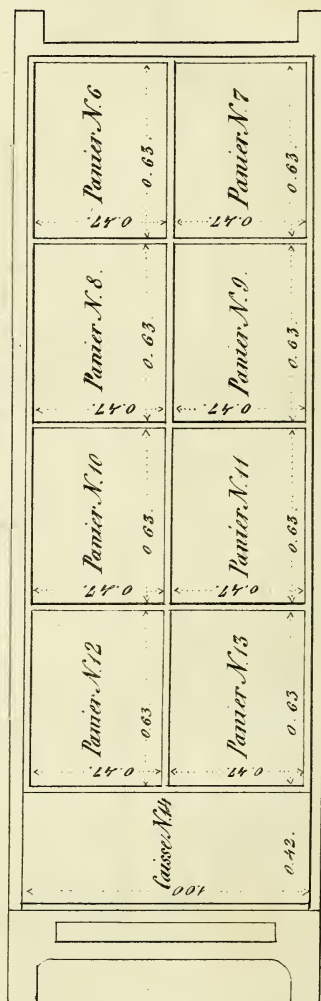 Panier N. 6
0.63.
0.47.
Panier N. 7
0.63.
0.47.
Panier N. 8.
0.63.
0.47.
Panier N. 9.
0.63.
0.47.
Panier N. 10
0.63.
0.47.
Panier N. 11
0.63.
0.47.
Panier N. 12
0.63.
0.47.
Panier N. 13
0.63
0.47.
Caisse N. 14
1.00
0.42.